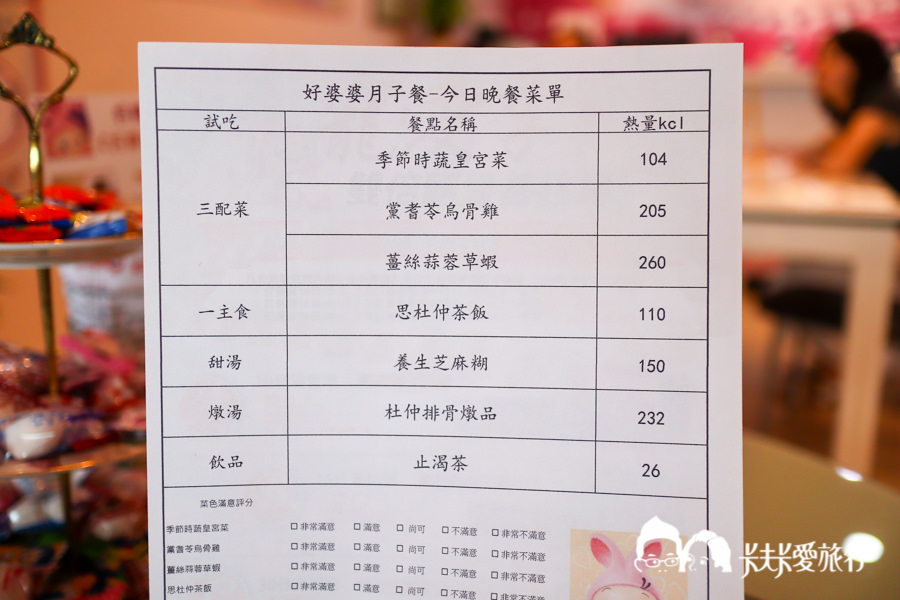 好婆婆月子餐-今日晚餐菜單
試吃 餐點名稱 熱量kcl
季節時蔬皇宮菜 104
三配菜 黨耆苓烏骨雞 205
薑絲蒜蓉草蝦 260
一主食 思杜仲茶飯 110
甜湯 養生芝麻糊 150
燉湯 杜仲排骨燉品 232
飲品 止渴茶 26
菜色滿意評分
季節時蔬皇宮菜 □ 非常滿意 □ 滿意 □ 尚可 □ 不滿意 □ 非常不滿意
黨耆苓烏骨雞 □ 非常滿意 □ 滿意 □ 尚可 □ 不滿意 □ 非常不滿意
薑絲蒜蓉草蝦 □ 非常滿意 □ 滿意 □ 尚可 □ 不滿意 □ 非常不滿意
思杜仲茶飯 □ 非常滿意 □ 滿意 □ 尚可 □ 不滿意 □ 非常不滿意
卡夫卡愛旅行